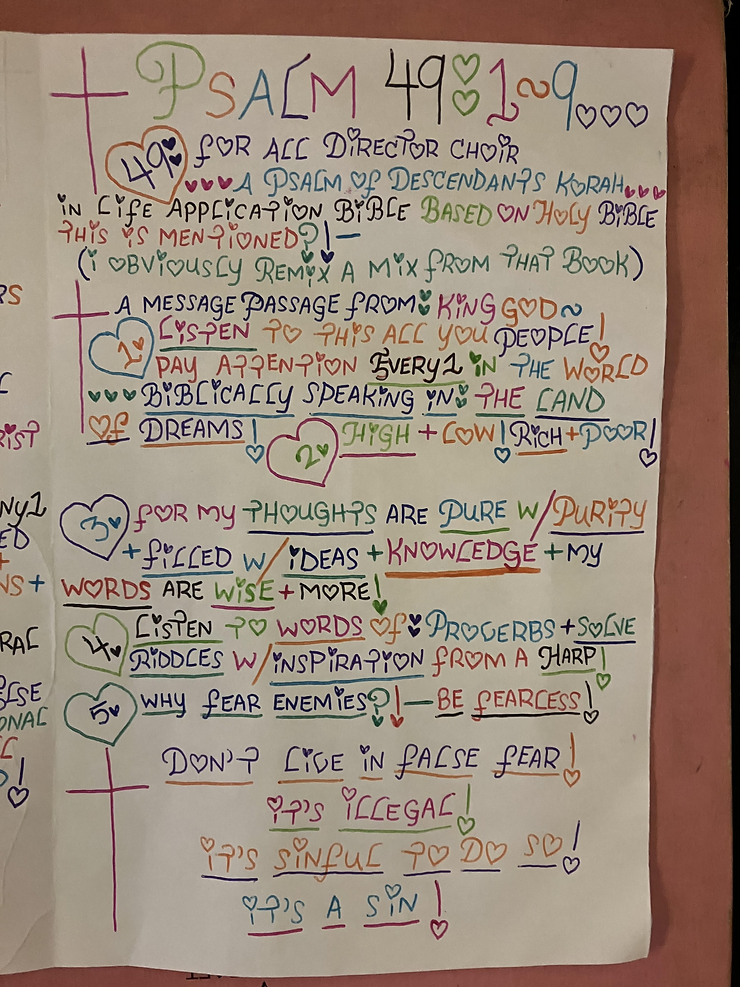 PSALM 49:1~9
49 FOR ALL DIRECTOR CHOIR
A PSALM OF DESCENDANTS KORAH
IN LIFE APPLICATION BIBLE BASED ON HOLY BIBLE
THIS IS MENTIONED?!—
(I OBVIOUSLY REMIX A MIX FROM THAT BOOK)
A MESSAGE PASSAGE FROM: KING GOD~
1 LISTEN TO THIS ALL YOU PEOPLE!
PAY ATTENTION EVERY1 IN THE WORLD
BIBLICALLY SPEAKING IN: THE LAND
OF DREAMS!
2 HIGH + LOW! RICH + POOR!
3 FOR MY THOUGHTS ARE PURE W/PURITY
+ FILLED W/IDEAS + KNOWLEDGE + MY
WORDS ARE WISE + MORE!
4 LISTEN TO WORDS OF: PROVERBS + SOLVE
RIDDLES W/INSPIRATION FROM A HARP!
5 WHY FEAR ENEMIES?!— BE FEARLESS!
DON'T LIVE IN FALSE FEAR!
IT'S ILLEGAL!
IT'S SINFUL TO DO SO!
IT'S A SIN!